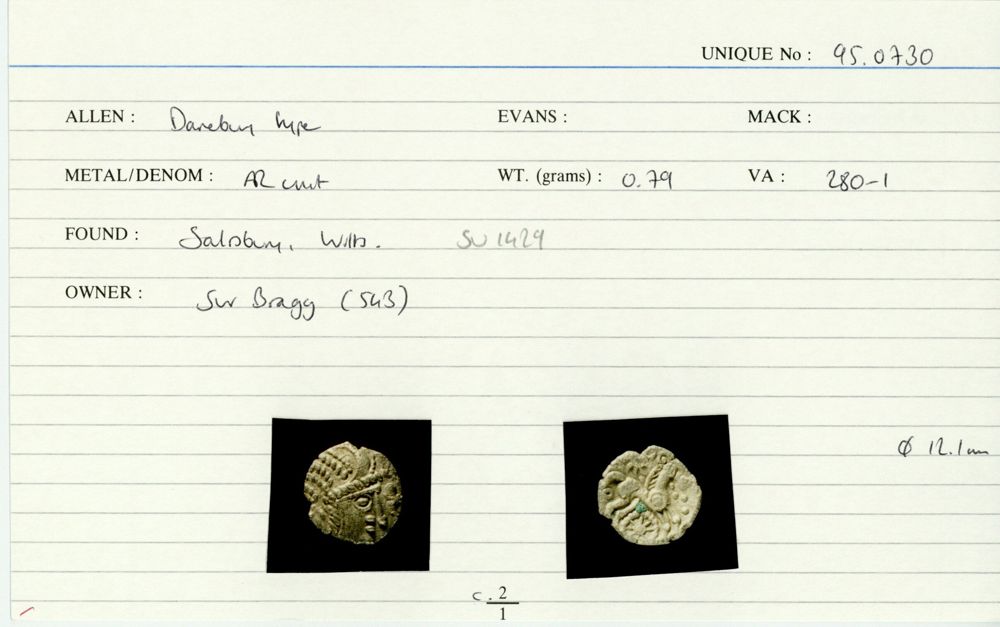 UNIQUE No : 95.0730
ALLEN : Danebury type EVANS : MACK :
METAL/DENOM : AR unit WT. (grams) : 0.79 VA : 280-1
FOUND : Salisbury, Wilts. SU 1429
OWNER : Sur Bragg (543)
Ø 12.1mm
c. 2
1